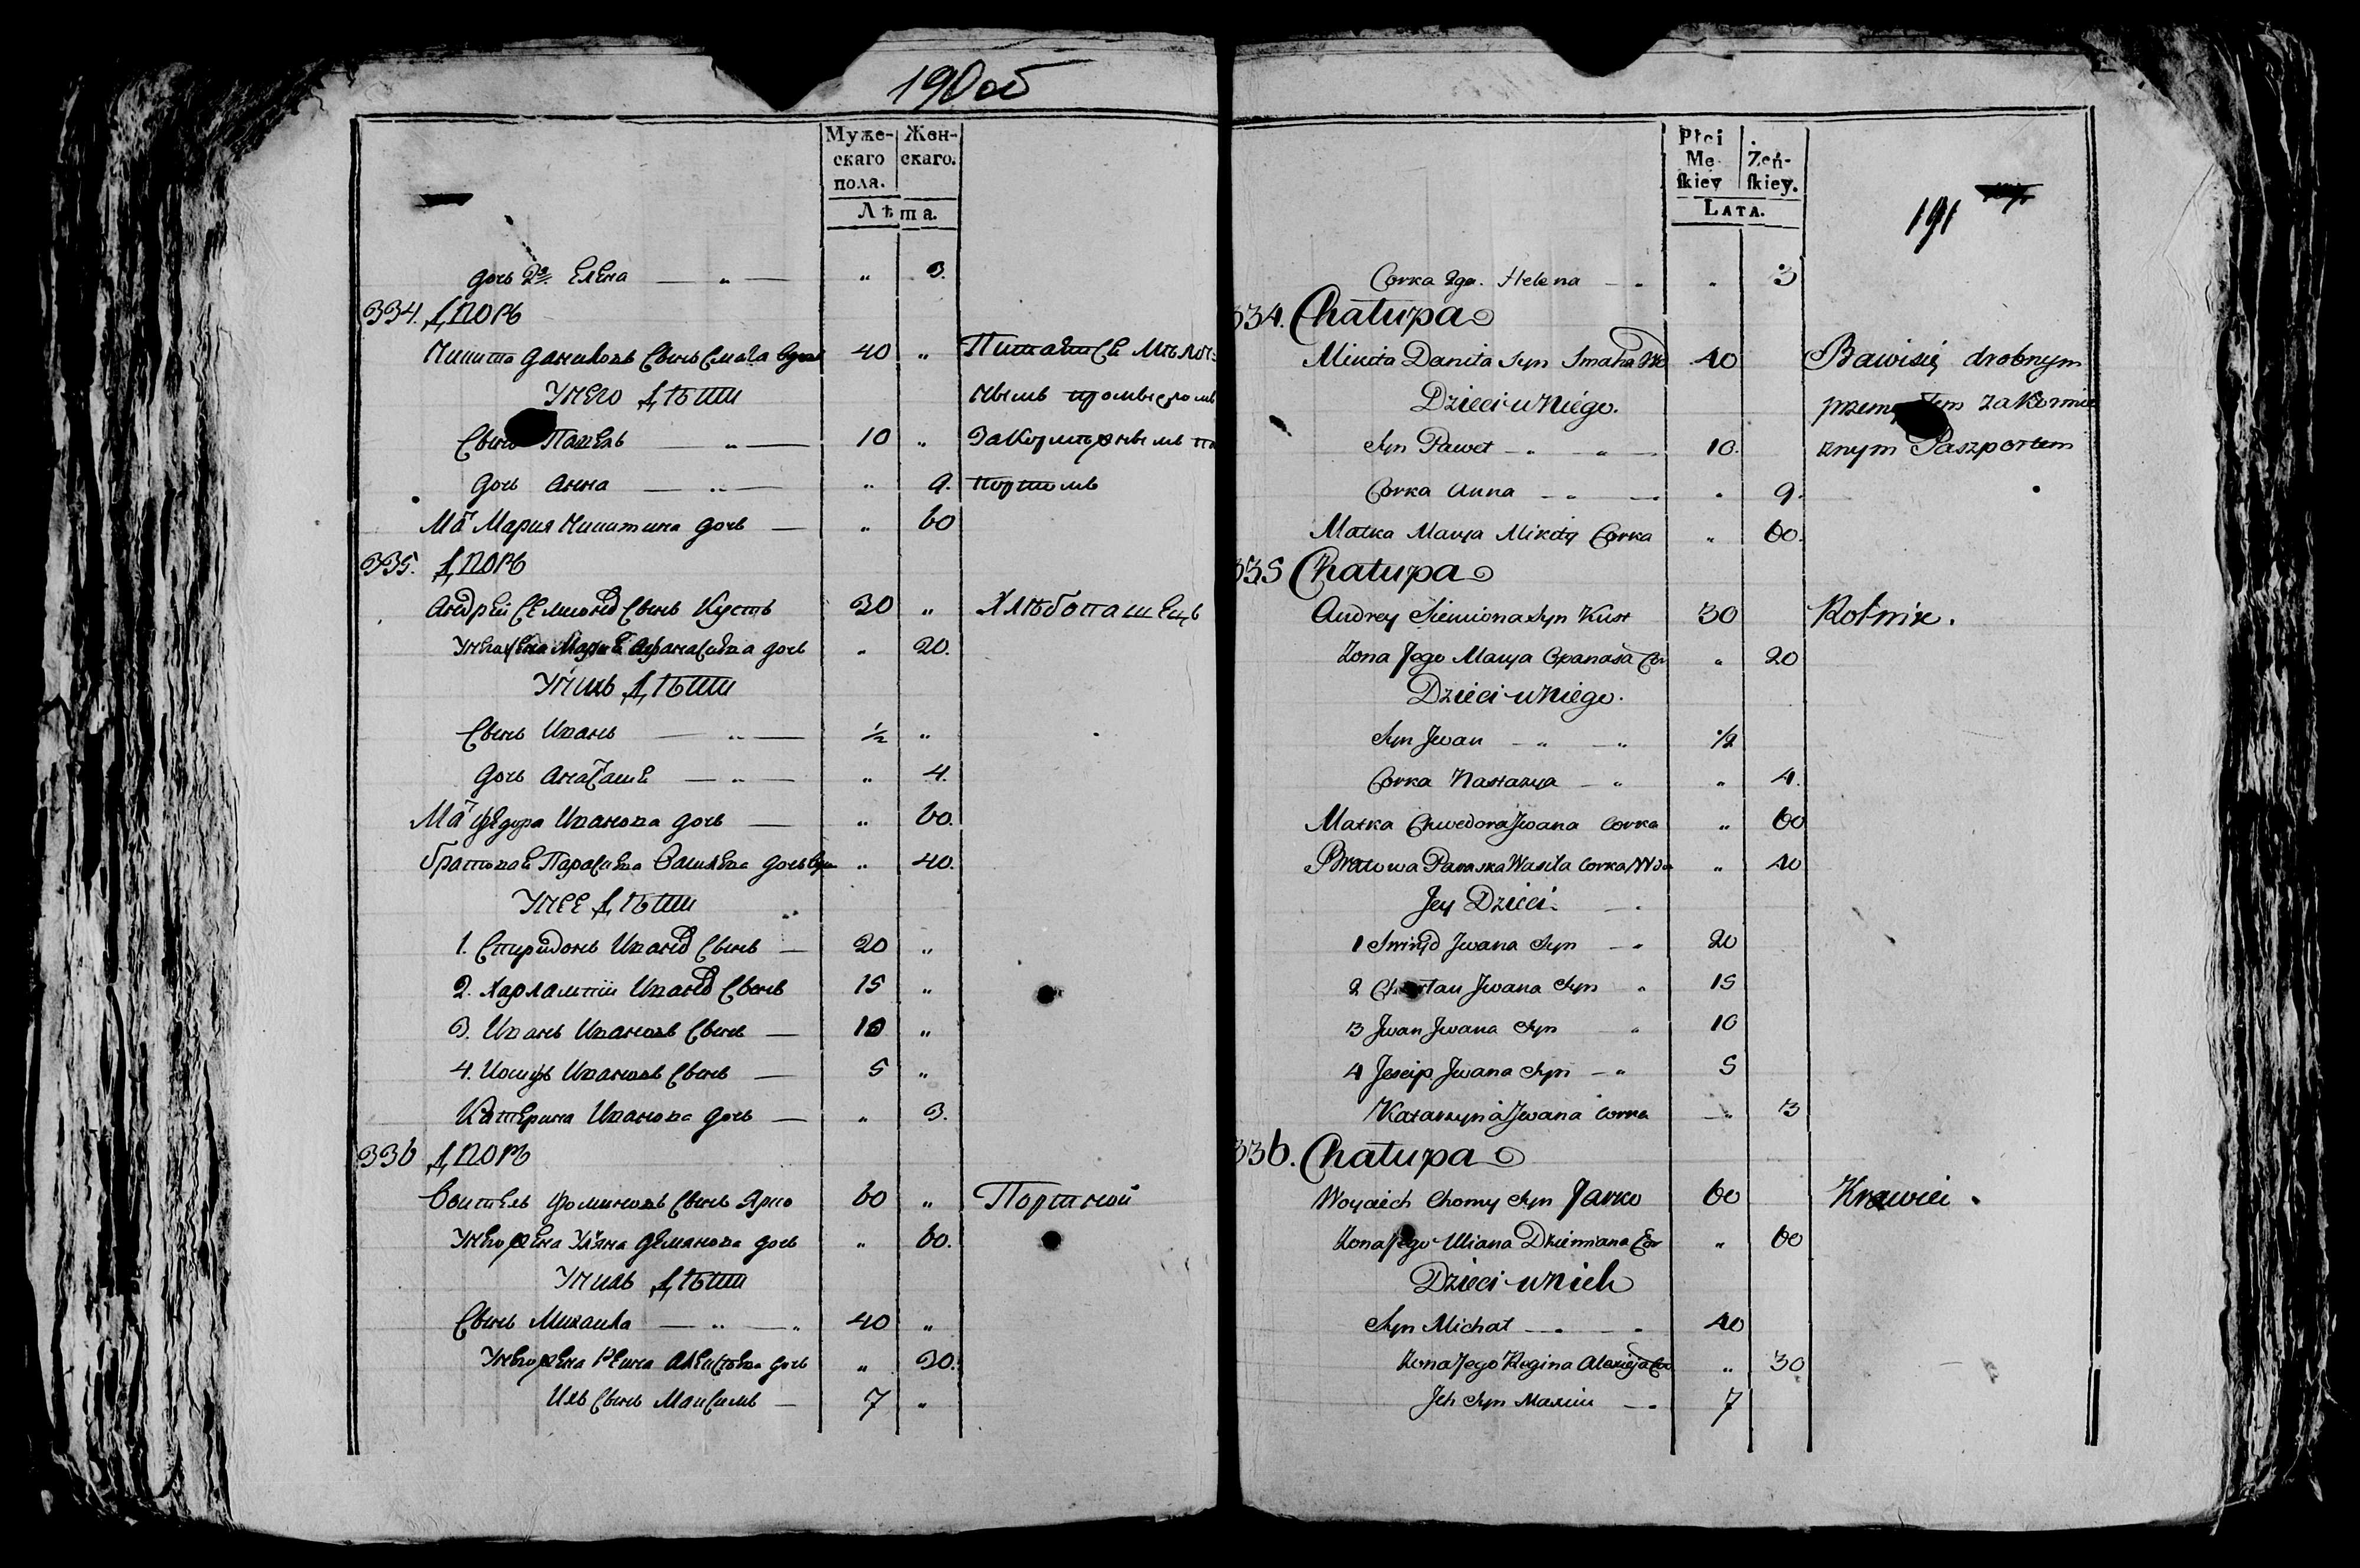 190 об
Муже-
скаго
пола.
Жен-
скаго.
Лѣта.
дочь 2я. Елена — „ — „ 3.
334. Дворъ
Никита Даниловъ Сынъ Смага вдов 40 „ Питается мѣлоч-
У него дѣти нымъ промысломъ
Сынъ Павелъ — „ — 10 „ Закормежнымъ па
дочь Анна — „ — „ 9. портомъ
Мат Мария Никитина дочь — „ 60
335. Дворъ
Андрѣй Семионов Сынъ Кустъ 30 „ Хлѣбопашецъ
У него жена Марiе Афанасиева дочь „ 20.
У нихъ дѣти
Сынъ Иванъ — „ — ½ „
дочь Анастасие — „ — „ 4.
Мат Федора Иванова дочь — „ 60.
братовае Парасиева Василева дочь вдо „ 40.
У нее дѣти „
1. Спиридонъ Иванов Сынъ — 20 „
2. Харлампiй Иванов Сынъ 15 „
3. Иванъ Ивановъ Сынъ — 10 „
4. Иосифъ Ивановъ Сынъ — 5 „
Катерина Иванова дочь — „ 3.
336 Дворъ
Войтель Фоминовъ Сынъ Ярко 60 „ Портной
У него жена Уляна Демянова дочь „ 60.
У нихъ дѣти
Сынъ Михаила — „ — „ 40 „
У него жена Регина Алексѣева дочь „ 30.
Ихъ Сынъ Максимъ — 7 „
Płci
Mę-
skiey
Żeń-
skiey.
LATA.
191
Corka 2ga. Helena — „ „ 3
334. Chałupa
Mikita Daniła Syn Smaha Wdo 40 Bawi się drobnym
Dzieci u Niego. przemysłem zakormie
Syn Paweł — „ „ — 10. znym Paszportem
Corka Anna — „ — „ 9.
Matka Marya Mikity Corka „ 60.
335 Chałupa
Andrey Siemiona Syn Kust 30 Rolnik.
Zona Jego Marya Opanasa Cor „ 20
Dzieci u Niego.
Syn Jwan — „ „ ½
Corka Nastazya — „ „ 4.
Matka Chwedora Jwana Corka „ 60
Bratowa Paraska Wasila Corka Wdo „ 40
Jey Dzieci. —
1 Swiryd Jwana Syn — „ 20
2 Jwana Syn „ 15
3 Jwan Jwana Syn „ 10
4 Joseip Jwana Syn — „ 5
Katarzyna Jwana Corka — „ 3
336. Chałupa
Woyciech Chomy Syn Jarko 60 Krawiec.
Zona Jego Uliana Dziemiana Cor „ 60
Dzieci u Nich
Syn Michał — „ — „ 40
Zona Jego Regina Alexieja Cor „ 30
Jch Syn Maxim — „ 7